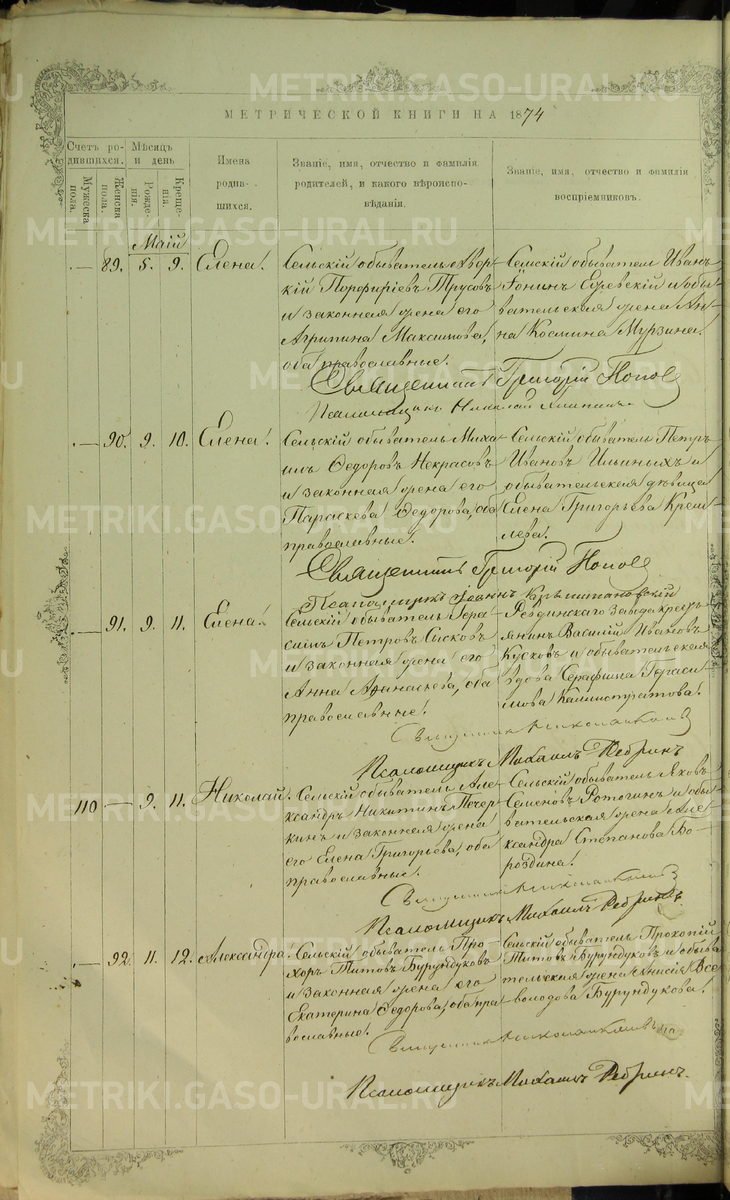 МЕТРИЧЕСКОЙ КНИГИ НА 1874
Счетъ родившихся.
Мужеска пола.
Женска пола.
Мѣсяцъ и день
Рожденія.
Крещенія.
Имена родившихся.
Званіе, имя, отчество и фамилія родителей, и какого вѣроисповѣданія.
Званіе, имя, отчество и фамилія воспріемниковъ.
Маій
— 89. 5. 9. Елена.
Сельскій обыватель Авер-
кій Порфиріевъ Трусовъ
и законная жена его
Агрипина Максимова,
оба православные.
Сельскій обыватель Иванъ
и обы-
вательская жена Ан-
на Космина Мурзина.
Священникъ Григорій Поповъ
Псаломщикъ Николай
— 90. 9. 10. Елена.
Сельскій обыватель Миха-
илъ Ѳедоровъ Некрасовъ
и законная жена его
Параскева Ѳедорова, оба
православные.
Сельскій обыватель Петръ
Ивановъ Ильиныхъ и
обывательская дѣвица
Елена Григорьева Крем-
лева.
Священникъ Григорій Поповъ
Псаломщикъ Іоаннъ
— 91. 9. 11. Елена.
Сельскій обыватель Гера-
симъ Петровъ Сысковъ
и законная жена его
Анна Аѳанасьева, оба
православные.
Ревдинскаго завода крестъ-
янинъ Василій Ивановъ
Кусковъ и обывательская
вдова Серафима Гераси-
мова Калистратова.
Священникъ
Псаломщикъ Михаилъ Ребринъ
110 — 9. 11. Николай.
Сельскій обыватель Але-
ксандръ Никитинъ Печер-
кинъ и законная жена
его Елена Григорьева, оба
православные.
Сельскій обыватель Яковъ
Семеновъ и обы-
вательская жена Але-
ксандра Степанова Бо-
роздина.
Священникъ
Псаломщикъ Михаилъ Ребринъ.
— 92. 11. 12. Александра.
Сельскій обыватель Про-
хоръ Титовъ Бурундуковъ
и законная жена его
Екатерина Ѳедорова, оба пра-
вославные.
Сельскій обыватель Прокопій
Титовъ Бурундуковъ и обыва-
тельская жена Анисія Все-
володова Бурундукова.
Священникъ
Псаломщикъ Михаилъ Ребринъ.
METRIKI.GASO-URAL.RU